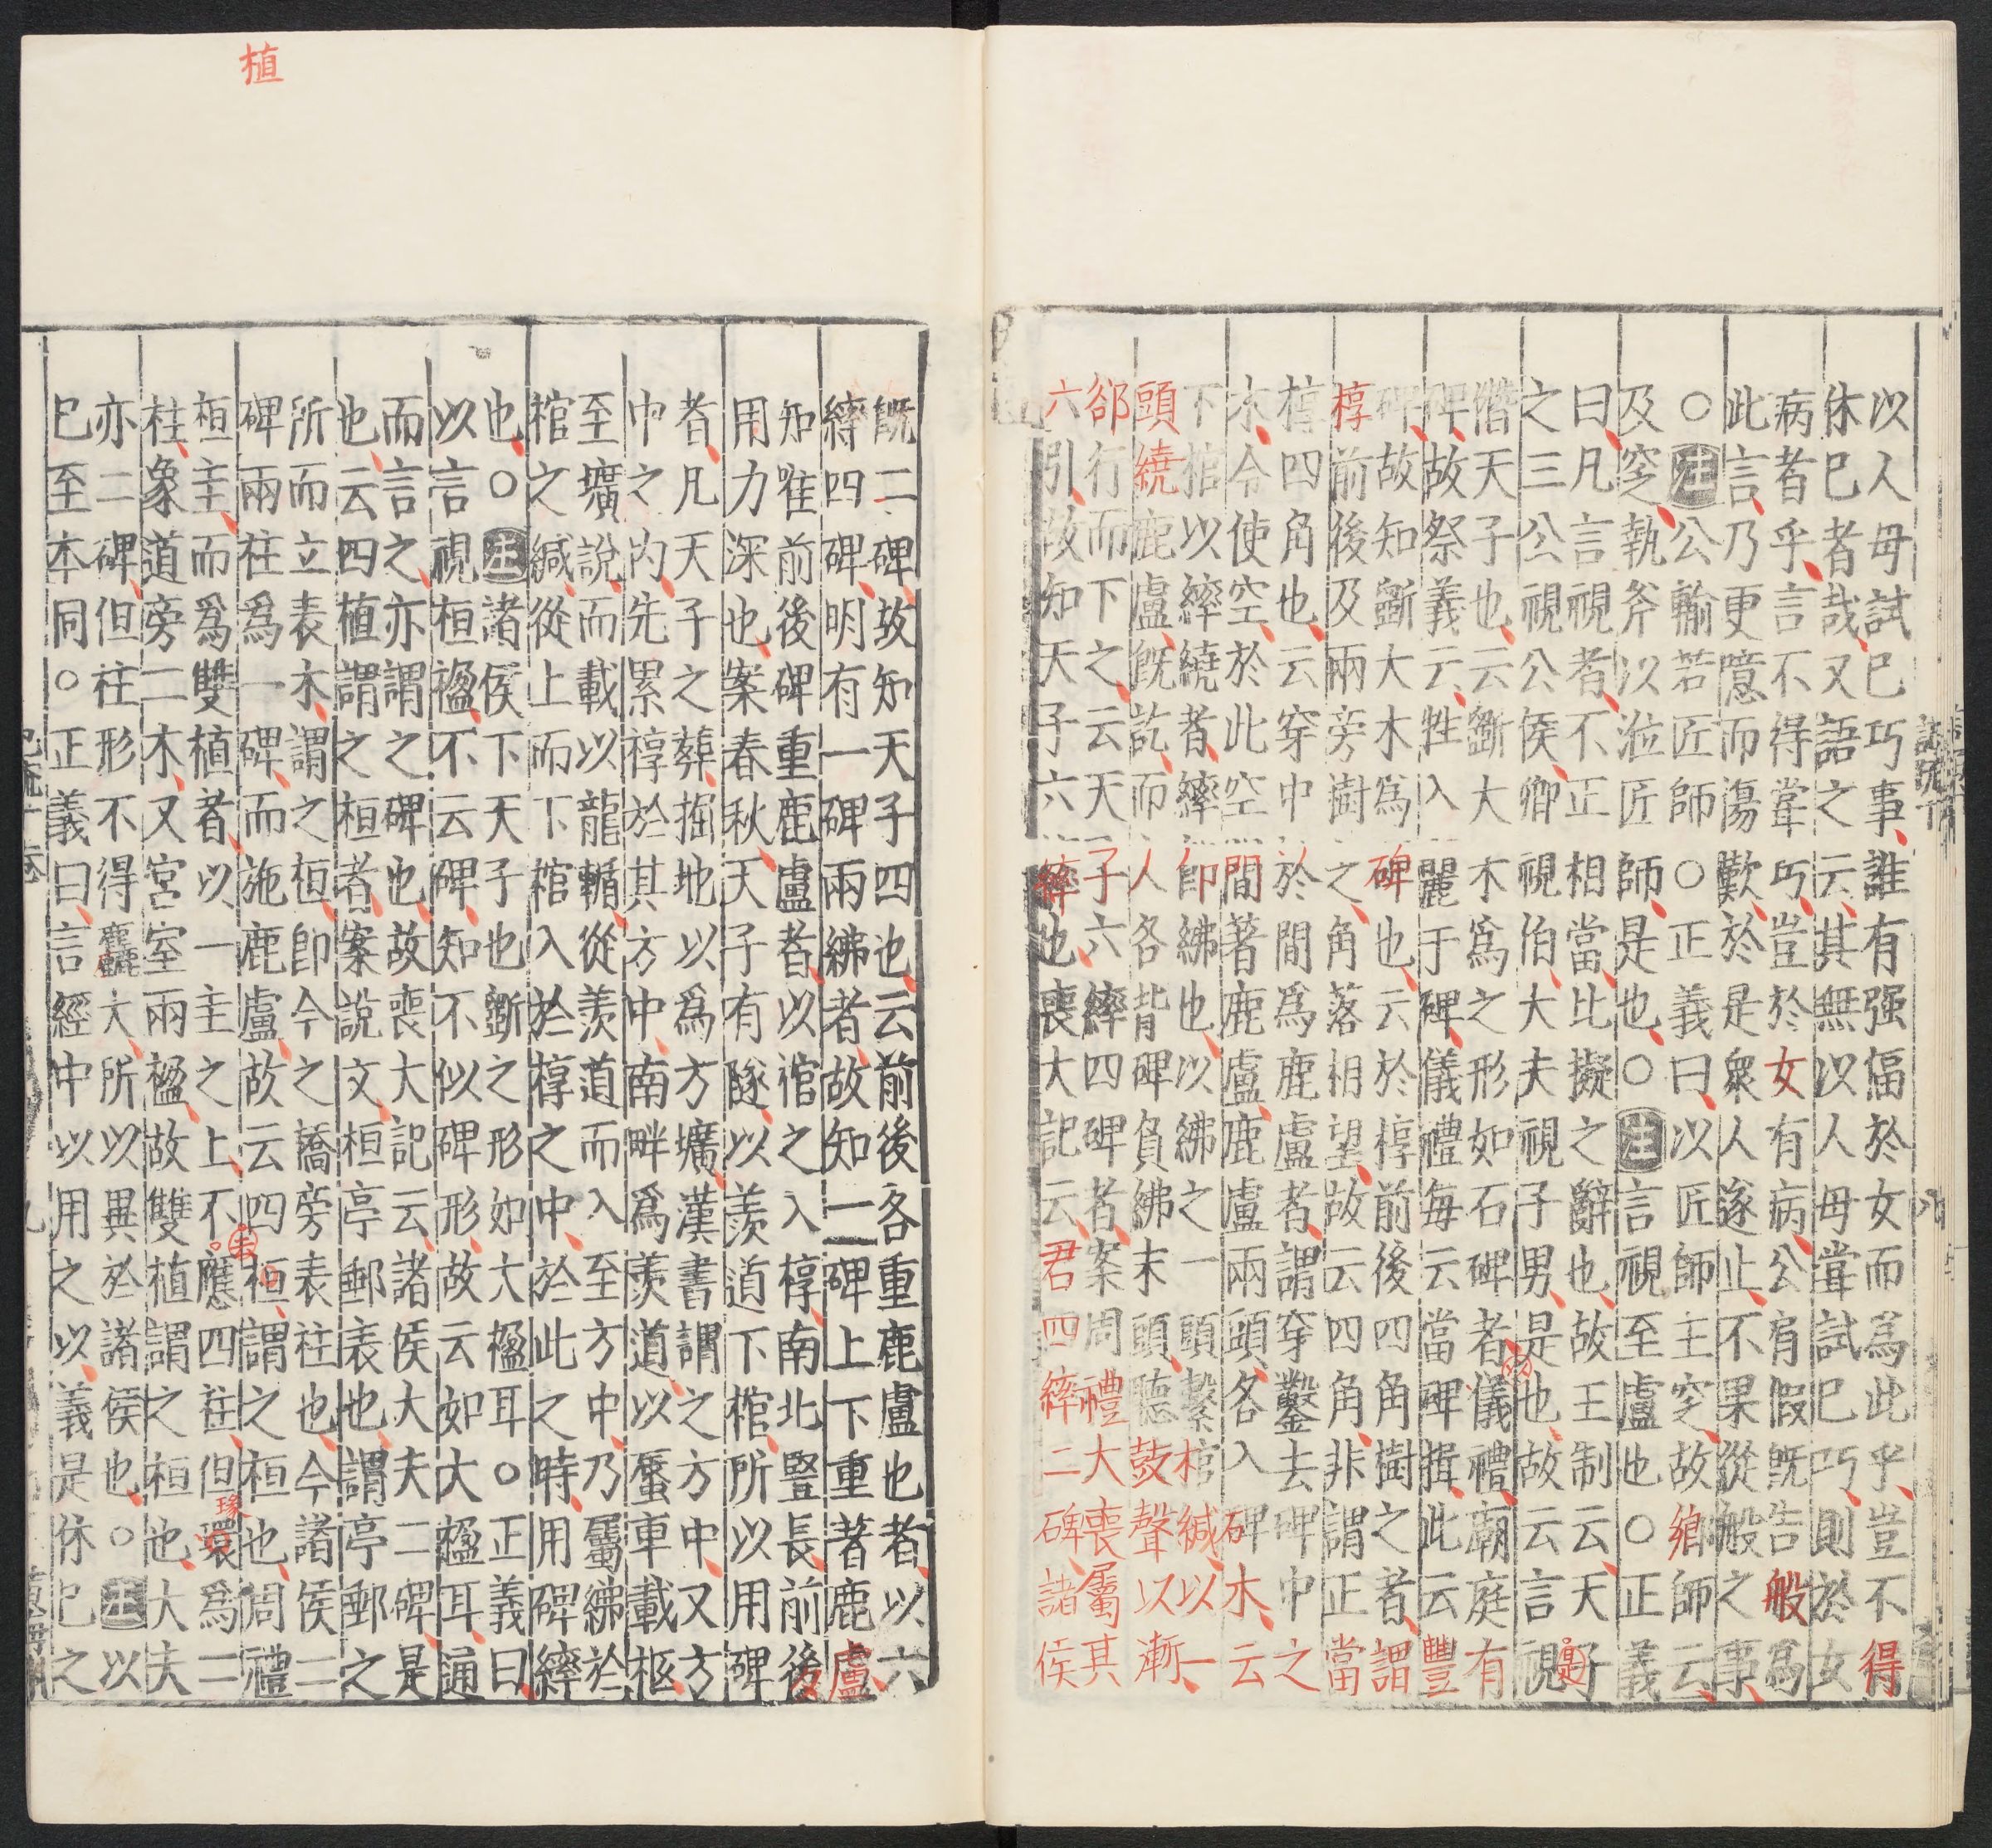 植
以人母試巳巧事誰有强偪於女而爲此乎豈不得
休巳者哉又語之云其無以人母嘗試巳巧則於女
病者乎言不得嘗巧豈於女有病公肩假既告般爲
此言乃更噫而傷歎於是衆人遂止不果從般之事
○注公輸若匠師○正義曰以匠師主窆故鄉師云
及窆執斧以涖匠師是也○注言視至盧也○正義
曰凡言視者不正相當比擬之辭也故王制云天子
之三公視公侯卿視伯大夫視子男是也故云言視
僭天子也云斵大木爲之形如石碑者儀禮廟庭有
碑故祭義云牲入麗于碑儀禮每云當碑揖此云豐
碑故知斵大木爲碑也云於椁前後四角樹之者謂
椁前後及兩旁樹之角落相望故云四角非謂正當
椁四角也云穿中於間爲鹿盧者謂穿鑿去碑中之
木令使空於此空間著鹿盧鹿盧兩頭各入碑木云
下棺以繂繞者繂即紼也以紼之一頭繫棺緘以一
頭繞鹿盧既訖而人各背碑負紼末頭聽鼓聲以漸
郤行而下之云天子六繂四碑者案周禮大喪屬其
六引故知天子六繂也喪大記云君四繂二碑諸侯
既二碑故知天子四也云前後各重鹿盧也者以六
繂四碑明有一碑兩紼者故知一碑上下重著鹿盧
知唯前後碑重鹿盧者以棺之入椁南北豎長前後
用力深也案春秋天子有隧以羨道下棺所以用碑
者凡天子之葬掘地以爲方壙漢書謂之方中又方
中之內先累椁於其方中南畔爲羨道以蜃車載柩
至壙說而載以龍輴從羨道而入至方中乃屬紼於
棺之緘從上而下棺入於椁之中於此之時用碑繂
也○注諸侯下天子也斵之形如大楹耳○正義曰
以言視桓楹不云碑知不似碑形故云如大楹耳通
而言之亦謂之碑也故喪大記云諸侯大夫二碑是
也云四植謂之桓者案說文桓亭郵表也謂亭郵之
所而立表木謂之桓即今之橋旁表柱也今諸侯二
碑兩柱爲一碑而施鹿盧故云四桓謂之桓也周禮
桓圭而爲雙植者以一圭之上不應四柱但環爲二
柱象道旁二木又宮室兩楹故雙植謂之桓也大夫
亦二碑但柱形不得麤大所以異於諸侯也○注以
巳至本同○正義曰言經中以用之以義是休巳之